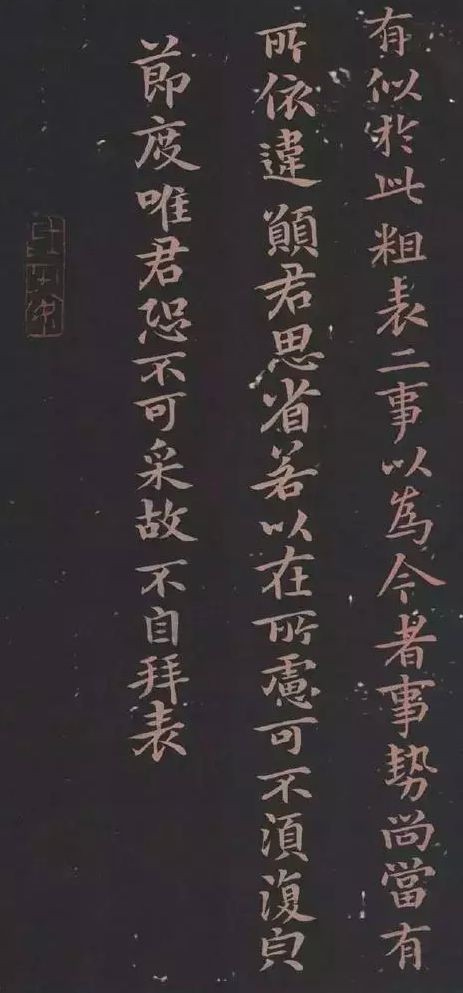 有似於此粗表二事以為今者事勢尚當有
所依違顚君思省若以在所慮可不須復皃
節度唯君恐不可采故不自拜表